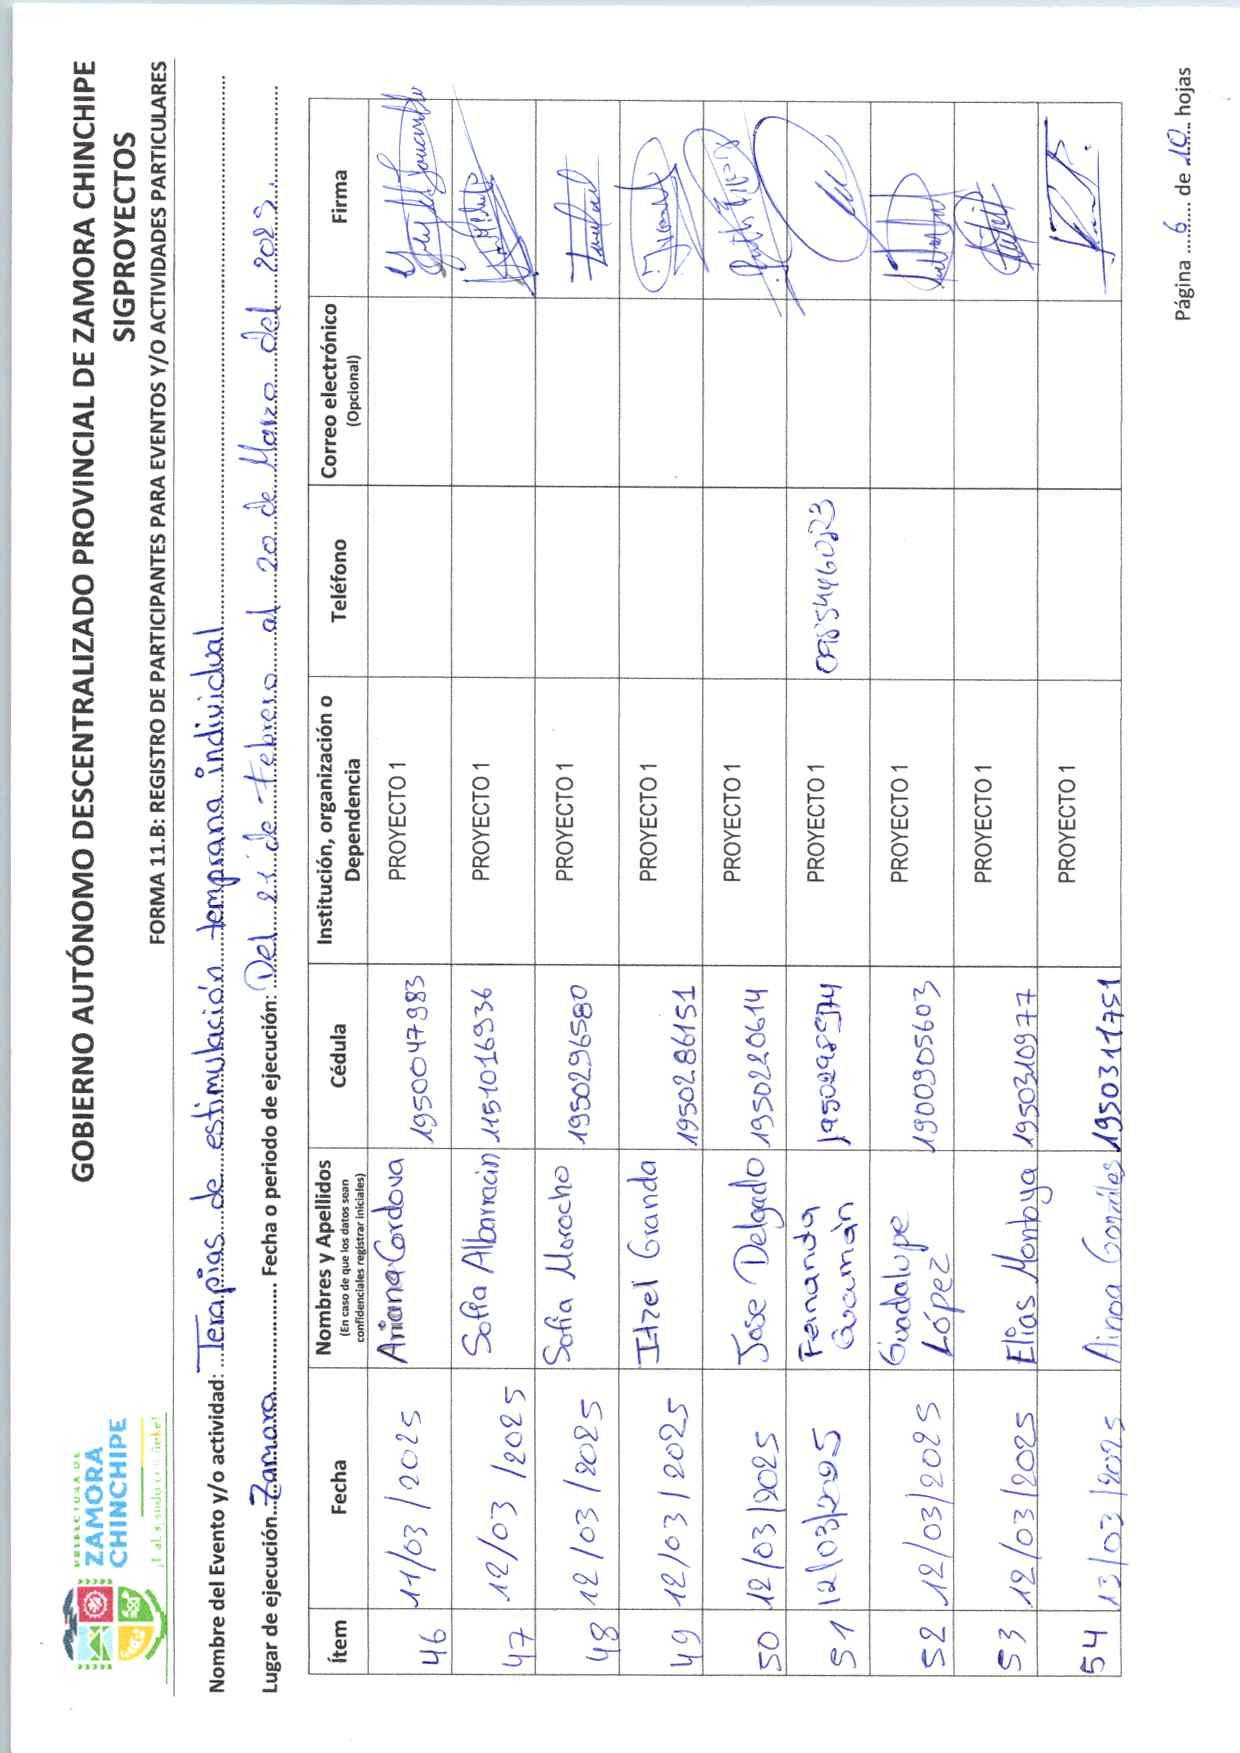 PREFECTURA DE
ZAMORA
CHINCHIPE
GOBIERNO AUTÓNOMO DESCENTRALIZADO PROVINCIAL DE ZAMORA CHINCHIPE
SIGPROYECTOS
FORMA 11.B: REGISTRO DE PARTICIPANTES PARA EVENTOS Y/O ACTIVIDADES PARTICULARES
Nombre del Evento y/o actividad: Terapias de estimulación temprana individual
Lugar de ejecución Zamora Fecha o periodo de ejecución: Del 21 de Febrero al 20 de Marzo del 2025.
Ítem Fecha Nombres y Apellidos (En caso de que los datos sean confidenciales registrar iniciales) Cédula Institución, organización o Dependencia Teléfono Correo electrónico (Opcional) Firma
46 11/03/2025 Ariana Cordova 1950047983 PROYECTO 1
47 12/03/2025 Sofia Albarracin 1151016936 PROYECTO 1
48 12/03/2025 Sofia Morocho 1950296580 PROYECTO 1
49 12/03/2025 Itzel Granda 1950286151 PROYECTO 1
50 12/03/2025 Jose Delgado 1950220614 PROYECTO 1
51 12/03/2025 Fernanda Guamán PROYECTO 1
52 12/03/2025 Guadalupe López 1900905603 PROYECTO 1
53 12/03/2025 Elias Montoya 1950310977 PROYECTO 1
54 13/03/2025 Ainoa Gonzáles 1950311751 PROYECTO 1
Página 6 de 10 hojas